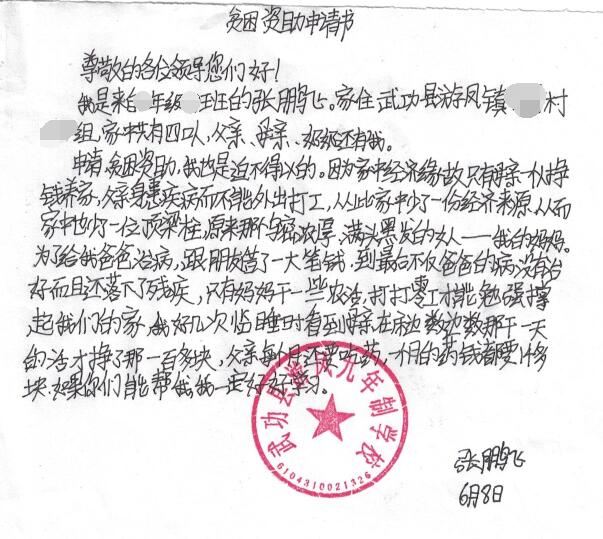 贫困资助申请书
尊敬的各位领导您们好！
我是来自年级班的张鹏飞。家住武功县游凤镇村
组，家中共有四口人，父亲、母亲、奶奶还有我。
申请贫困资助，我也是迫不得以的。因为家中经济缘故只有母亲一人挣
钱养家，父亲身患疾病而不能外出打工，从从此家中少了一份经济来源从而
家中也少了一位顶梁柱，原来那个容浓厚，满头黑发的女人——我的妈妈。
为了给我爸爸治病，跟朋友借了一大笔钱，到最后不仅爸爸的病没有治
好而且还落下了残疾，只有妈妈干一些农活，打打零工才能勉强撑
起我们的家，我好几次临睡时看到母亲在床边数边数那干一天
的活才挣了那一百多块，父亲每个月还要吃药，一个月的药钱都要许多
块.如果你们能帮我,我一定好好学习。
武功县游凤九年制学校
6104310021326
张鹏飞
6月8日